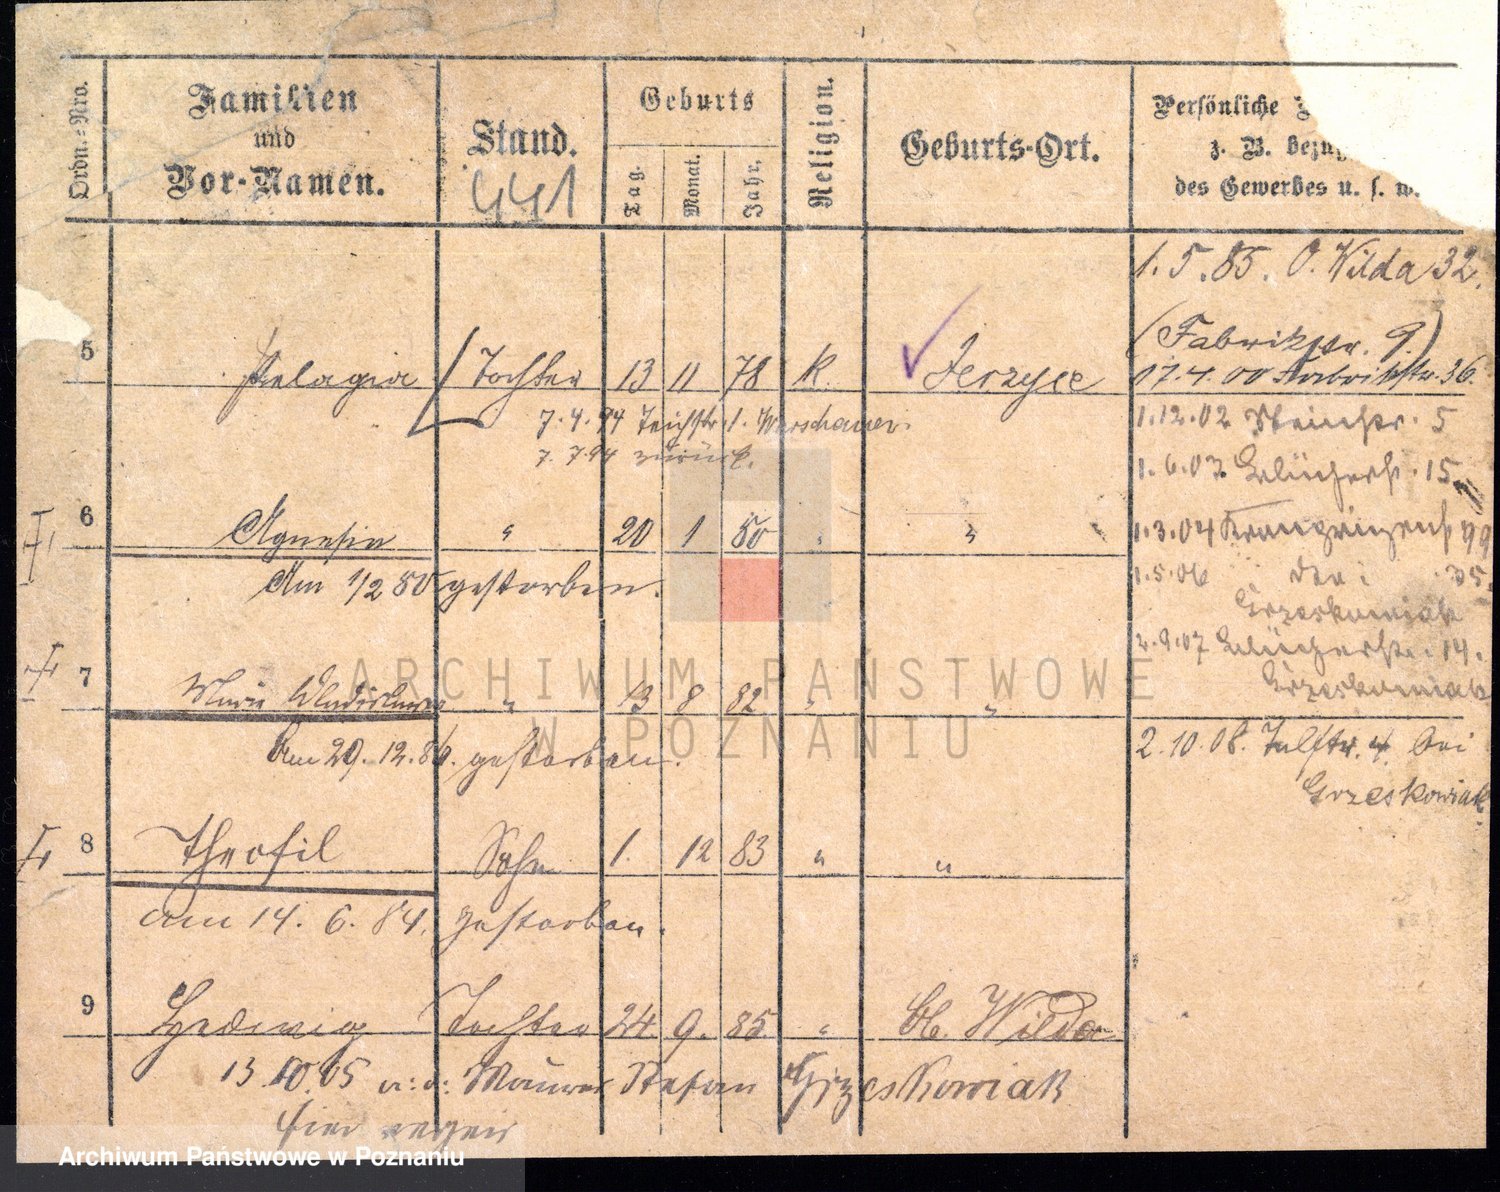 Ordn.-Nro.
Familien
und
Vor-Namen.
Stand.
441
Geburts
Tag.
Monat.
Jahr.
Religion.
Geburts-Ort.
Persönliche
z. B. bezüg
des Gewerbes u. s. w.
1.5.85. O. Wilda 32.
(Fabrikstr. 9.)
5 Pelagia Tochter 13 11 78 k. Jerzyce
17.4.00 Fabrikstr. 36.
7.4.94 Teichstr. 1. Warschauer.
7.7.94 zurück.
1.12.02 5
1.6.03. Blücherstr. 15
6 Agnesia " 20 1 80 " "
1.3.04 99
Am 1/2 80 gestorben.
1.5.06 35.
Grzeskowiak
2.9.07 Blücherstr. 14.
7 Maria Wladislawa " 13 8 82 " "
Grzeskowiak
Am 29.12.86. gestorben.
2.10.08. 4. bei
Grzeskowiak
8 Theofil Sohn 1. 12 83 " "
am 14. 6. 84. gestorben.
9 Hedwig Tochter 24 9. 85 " Ob. Wilda
13.10.05 a: d: Maurer Stefan Grzeskowiak
hier
ARCHIWUM PAŃSTWOWE
W POZNANIU
Archiwum Państwowe w Poznaniu